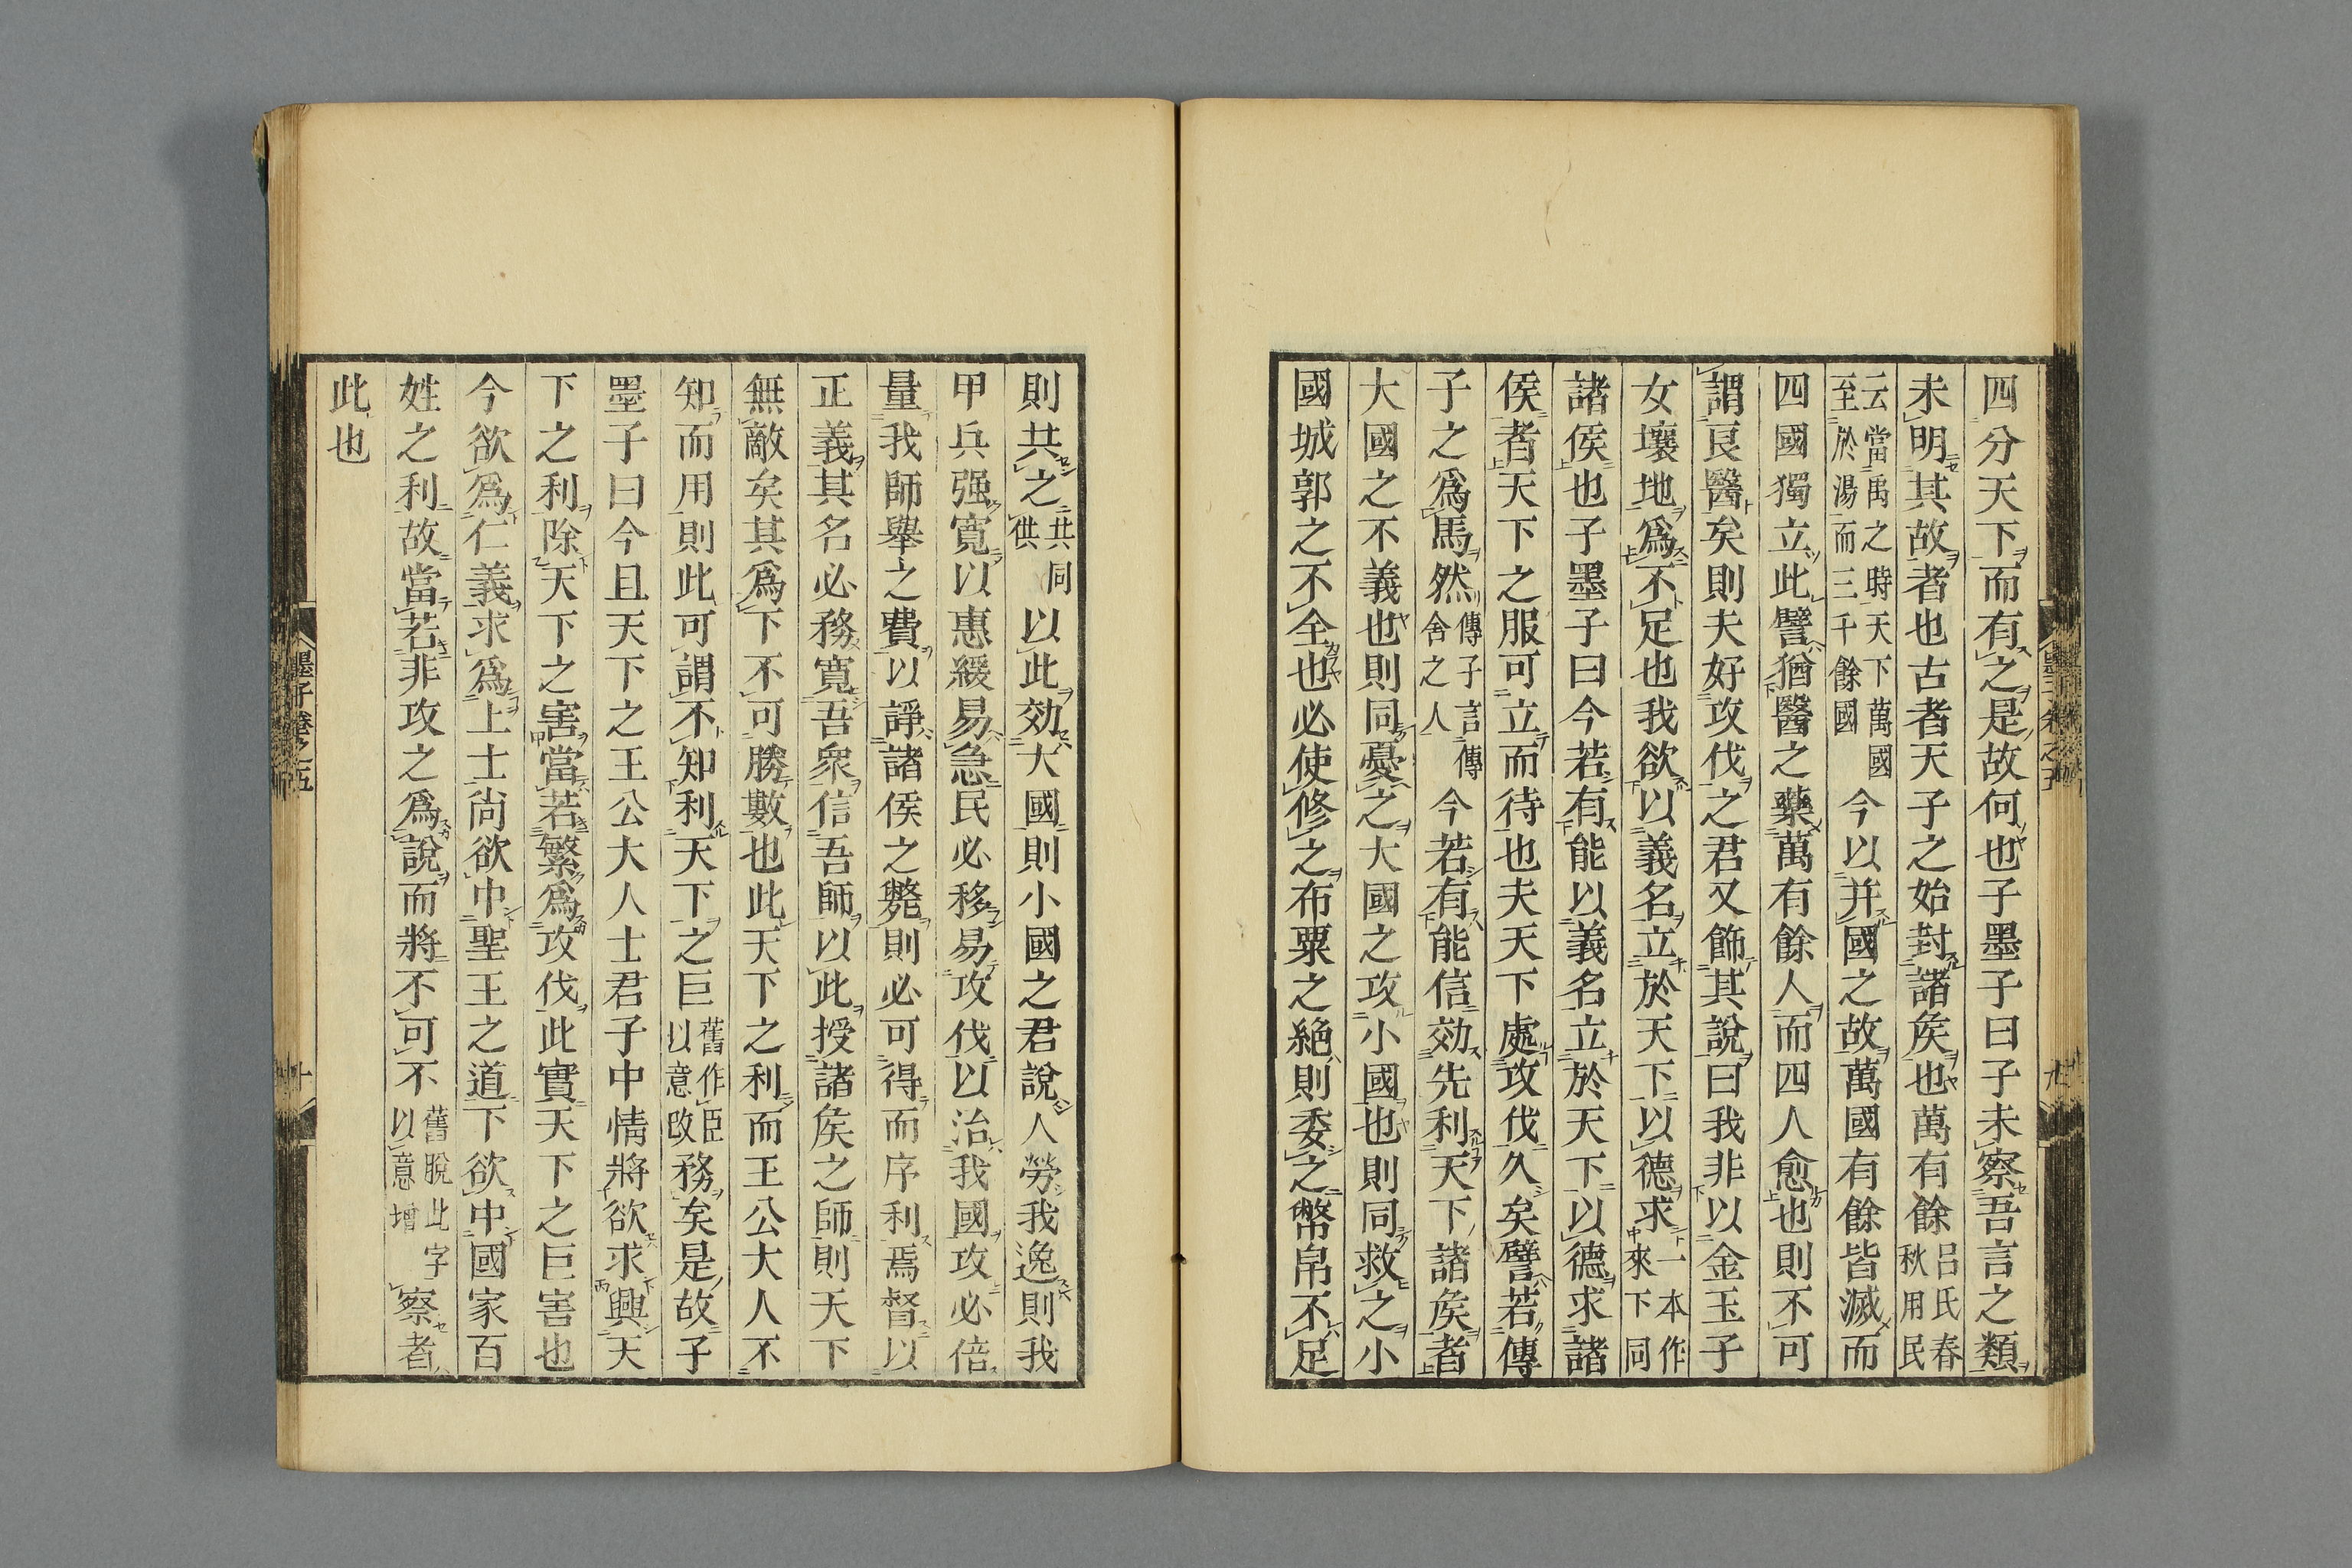 四分天下而有之是故何也子墨子曰子未察吾言之類
未明其故者也古者天子之始封諸矦也萬有餘呂氏春秋用民
云當禹之時天下萬國至於湯而三千餘國今以并國之故萬國有餘皆滅而
四國獨立此譬猶醫之藥萬有餘人而四人愈也則不可
謂良醫矣則夫好攻伐之君又飾其說曰我非以金玉子
女壤地爲不足也我欲以義名立於天下以德求一本作來下同
諸侯也子墨子曰今若有能以義名立於天下以德求諸
侯者天下之服可立而待也夫天下處攻伐久矣譬若傳
子之爲馬然傳子言傳舍之人今若有能信効先利天下諸矦者
大國之不義也則同憂之大國之攻小國也則同救之小
國城郭之不全也必使修之布粟之絶則委之幣帛不足
則共之共同供以此効大國則小國之君說人勞我逸則我
甲兵强寬以惠緩易急民必移易攻伐以治我國攻必倍
量我師舉之費以諍諸侯之斃則必可得而序利焉督以
正義其名必務寬吾衆信吾師以此授諸矦之師則天下
無敵矣其爲下不可勝數也此天下之利而王公大人不
知而用則此可謂不知利天下之巨舊作臣以意改務矣是故子
墨子曰今且天下之王公大人士君子中情將欲求興天
下之利除天下之害當若繁爲攻伐此實天下之巨害也
今欲爲仁義求爲上士尚欲中聖王之道下欲中國家百
姓之利故當若非攻之爲說而將不可不舊脫此字以意增察者
此也
墨子卷之五
十